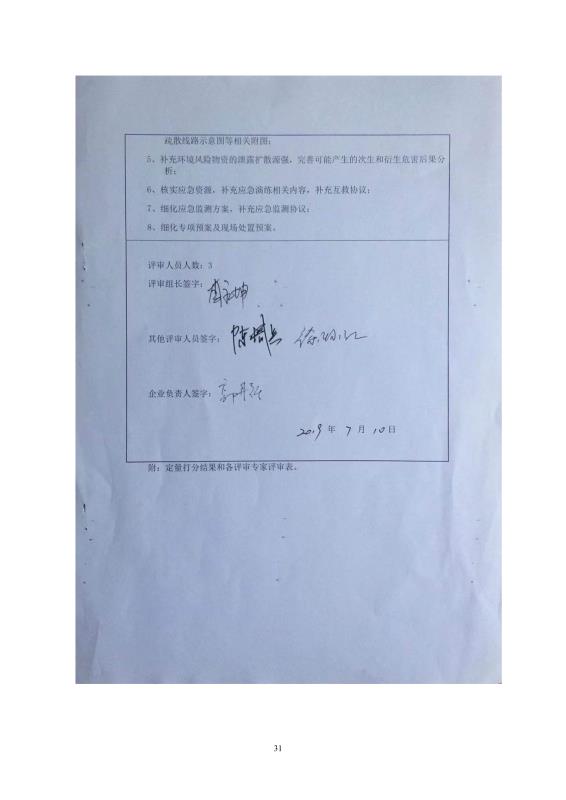 疏散线路示意图等相关附图；
5、补充环境风险物资的泄露扩散源强，完善可能产生的次生和衍生危害后果分
析；
6、核实应急资源，补充应急演练相关内容，补充互救协议；
7、细化应急监测方案，补充应急监测协议；
8、细化专项预案及现场处置预案。
评审人员人数：3
评审组长签字：
其他评审人员签字：
企业负责人签字：
2019 年 7 月 10 日
附：定量打分结果和各评审专家评审表。
31